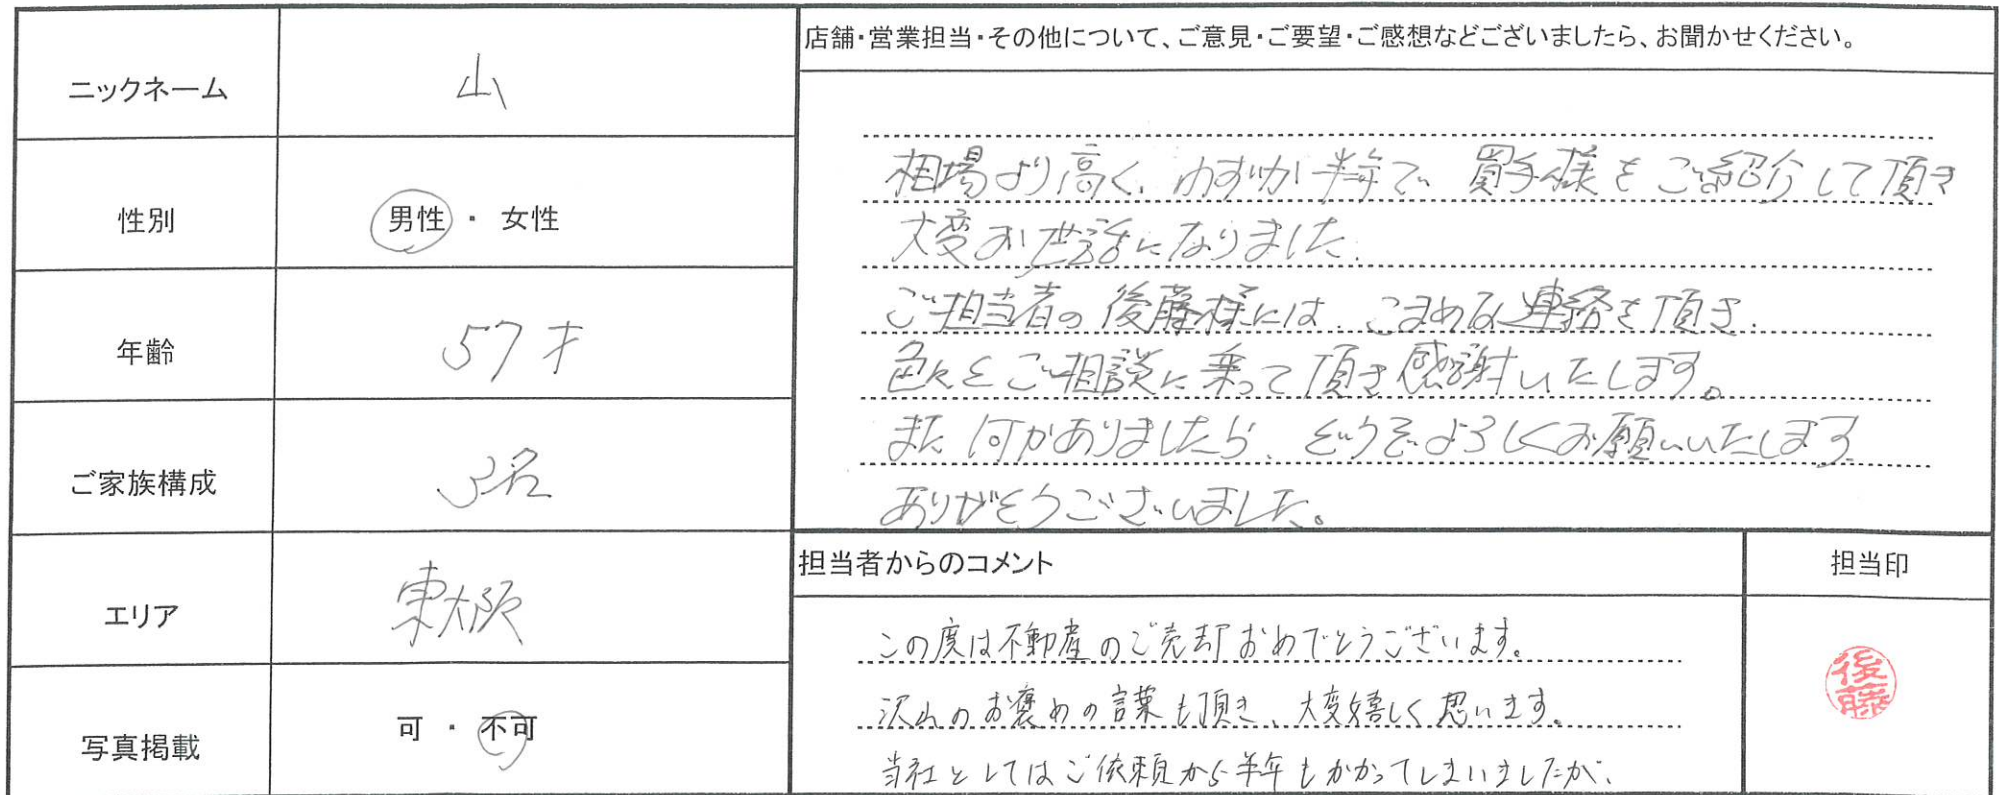 ニックネーム
山
性別
男性・女性
年齢
57才
ご家族構成
3名
エリア
東大阪
写真掲載
可・不可
店舗・営業担当・その他について、ご意見・ご要望・ご感想などございましたら、お聞かせください。
相場より高く、わずか半年で、買手様をご紹介して頂き
大変お世話になりました。
ご担当者の後藤様には、こまめな連絡を頂き、
色々とご相談に乗って頂き感謝いたします。
また何かありましたら、どうぞよろしくお願いいたします。
ありがとうございました。
担当者からのコメント
この度は不動産のご売却おめでとうございます。
沢山のお褒めの言葉も頂き、大変嬉しく思います。
当社としてはご依頼から半年もかかってしまいましたが、
担当印
後藤